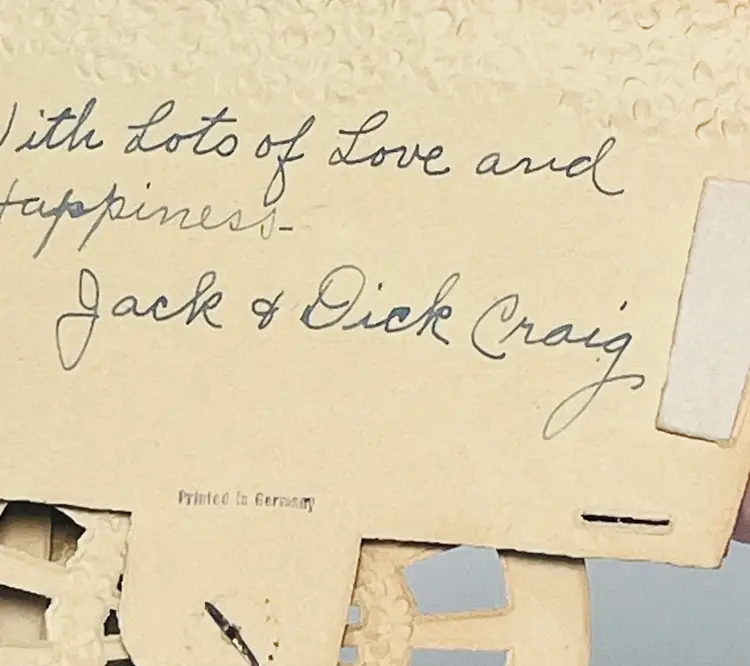 With Lots of Love and
Happiness-
Jack & Dick Craig
Printed in Germany